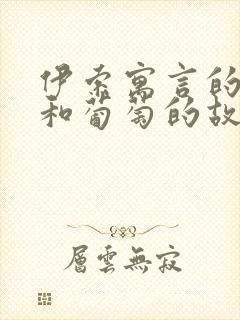 伊索寓言的
和葡萄的故
層雲無寂